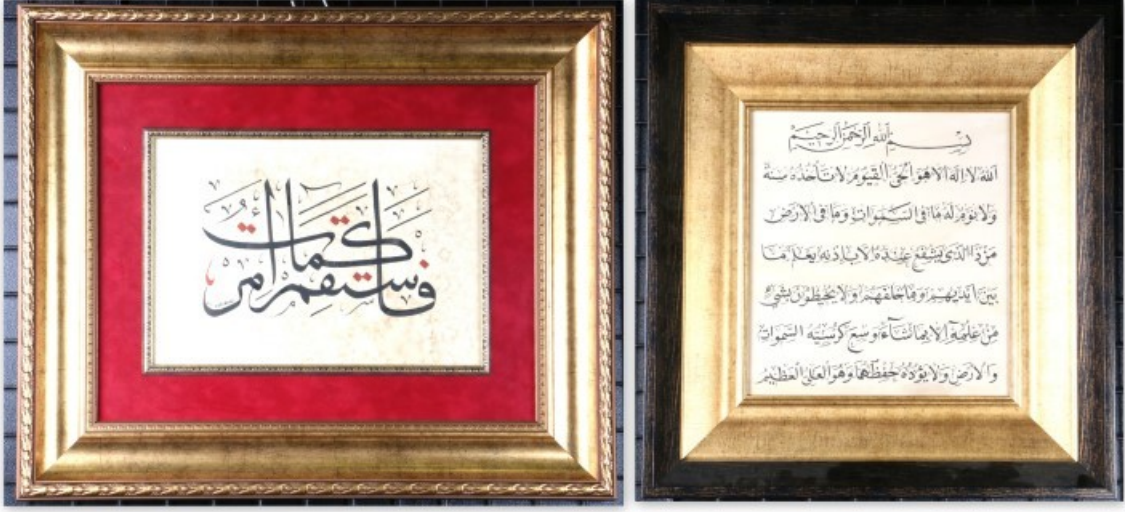 فاستقم كما أمرت
بسم الله الرحمن الرحيم
الله لا اله الا هو الحي القيوم لا تأخذه سنة
ولا نوم له ما في السموات وما في الارض
من ذا الذي يشفع عنده الا باذنه يعلم ما
بين ايديهم وما خلفهم ولا يحيطون بشيء
من علمه الا بما شاء وسع كرسيه السموات
والارض ولا يؤده حفظهما وهو العلي العظيم